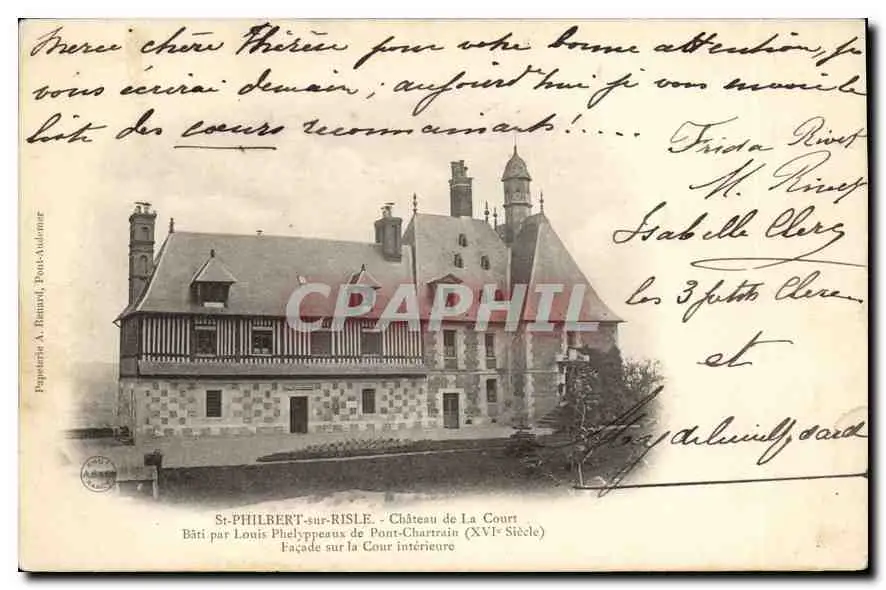 Merci chère Thérèse pour votre bonne attention, je
vous écrirai demain ; aujourd'hui je vous envoie la
liste des cœurs reconnaissants !.....
Frida Rivet
M. Rivet
Isabelle Clerc
les 3 petits Clercs
et
Papeterie A. Renard, Pont-Audemer
CPARAPHIL
St-PHILBERT-sur-RISLE. - Château de La Court
Bâti par Louis Phelyppeaux de Pont-Chartrain (XVIe Siècle)
Façade sur la Cour intérieure